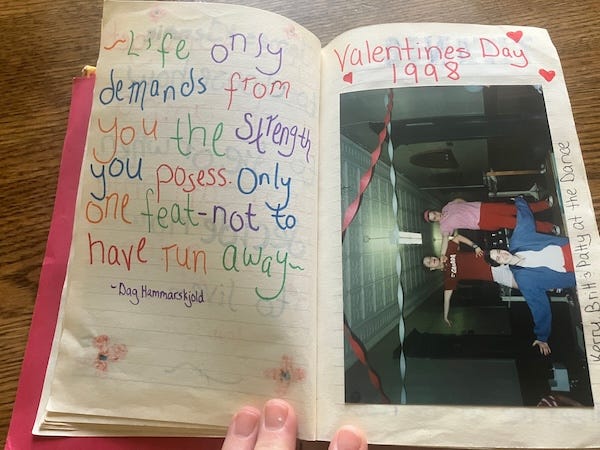 ~Life only
demands from
you the Strength
you posess. Only
one feat-not to
have run away~
~Dag Hammarskjold
Valentines Day
1998
Kerry, Britt & Patty at the Dance